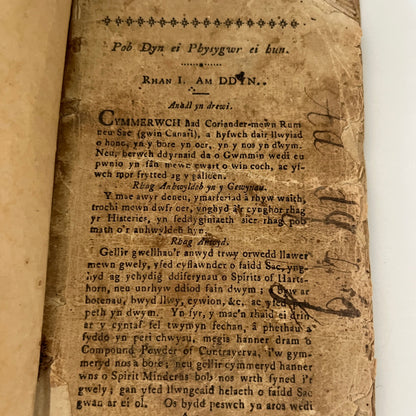 Pob Dyn ei Physygwr ei hun.
RHAN I. AM DDYN.
Anadl yn drewi.
CYMMERWCH had Coriander mewn Rum
neu Sac (gwin Canari), a hyfwch dair llwyiad
o hono, yn y bore yn oer, yn y nos yn dwym.
Neu, berwch ddyrnaid da o Gwmmin wedi eu
pwnio yn fân mewn cwart o win coch, ac yfwch
mor frytted ag y galloch.
Rhag Anhwyldeb yn y Gewynau.
Y mae awyr deneu, ymarferiad a rhyw waith,
trochi mewn dwfr oer, ynghyd a'r cynghor rhag
yr Histerics, yn feddyginiaeth sicr rhag pob
math o'r anhwyldeb hyn.
Rhag Anwyd.
Gellir gwellhau'r anwyd trwy orwedd llawer
mewn gwely, yfed cyflawnder o faidd Sac, yng-
yd ag ychydig ddiferynau o Spirits of Harts-
horn, neu unrhyw ddiod fain dwym;
hotenau, bwyd llwy, cywion, &c. ac yfed
peth yn dwym. Yn fyr, y mae'n rhaid ei drin
ar y cyntaf fel twymyn fechan, â phethau a
fyddo yn peri chwysu, megis hanner dram o
Compound Powder of Contrayerva, i'w gym-
meryd nos a bore; neu gellir cymmeryd hanner
wns o Spirit Minderus bob nos wrth fyned i'r
gwely; gan yfed llwngcaid helaeth o faidd Sac
gwan ar ei ol. Os bydd peswch yn aros wedi